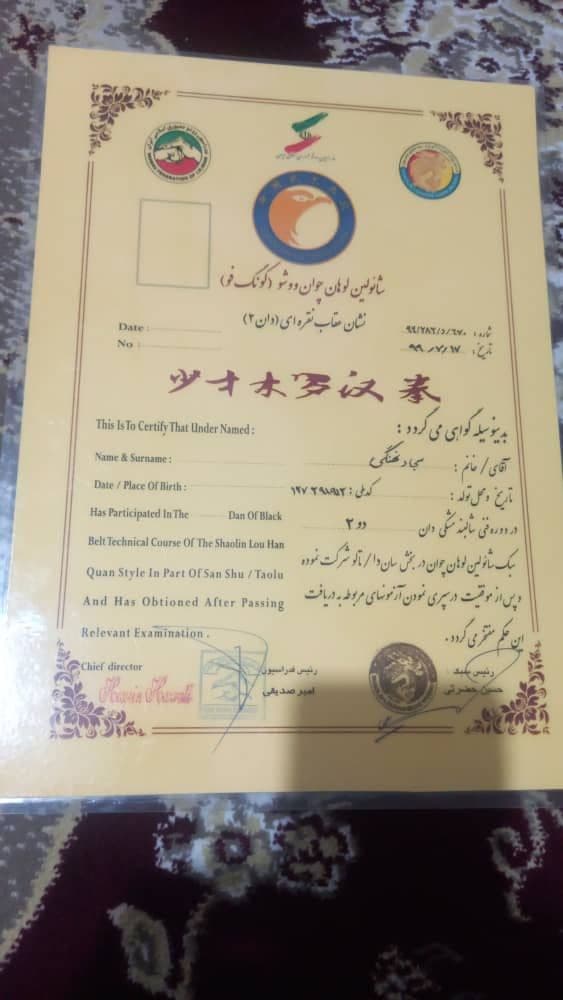 شائولین لوهان چوان ووشو (کونگ فو)
نشان عقاب نقره ای (دان ۲)
Date :
No :
شماره :
تاریخ : ۹۹/۷/۱۷
少才木罗汉拳
This Is To Certify That Under Named :
بدینوسیله گواهی می گردد :
Name & Surname :
آقای / خانم : سجاد
Date / Place Of Birth :
تاریخ و محل تولد : کدملی :
Has Participated In The Dan Of Black
در دوره فنی شالبند مشکی دان دو ۲
Belt Technical Course Of The Shaolin Lou Han
سبک شائولین لوهان چوان در بخش ساندا / تالو شرکت نموده
Quan Style In Part Of San Shu / Taolu
و پس از موفقیت در سپری نمودن آزمونهای مربوطه به دریافت
And Has Obtioned After Passing
این حکم مفتخر می گردد.
Relevant Examination .
Chief director
رئیس فدراسیون
امیر صدیقی
رئیس سبک
حسن حضرتی